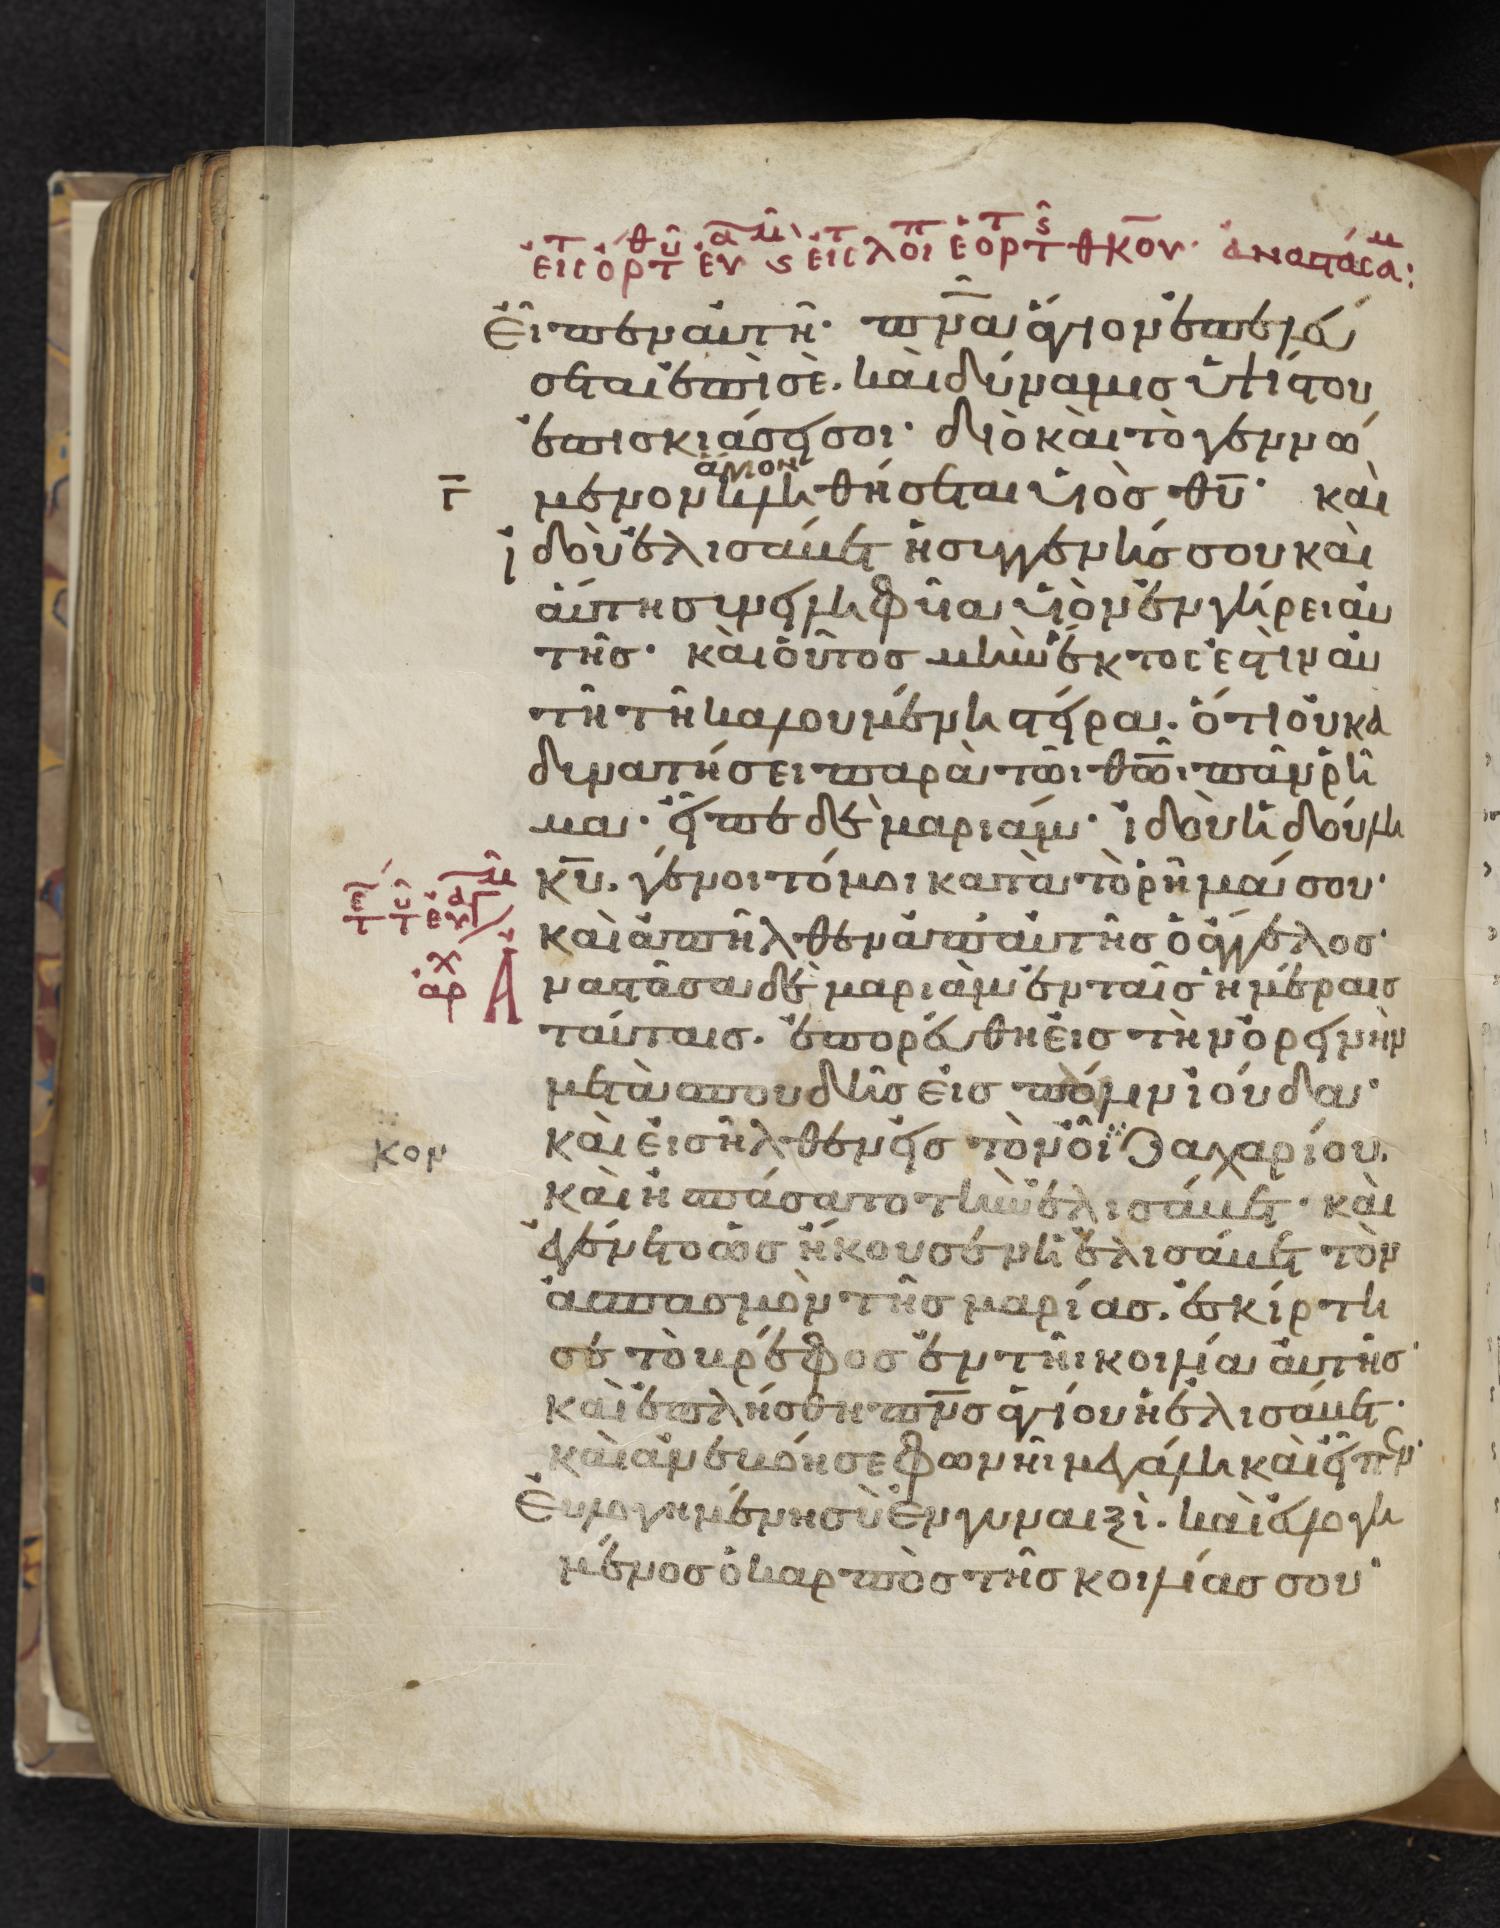 εἶπεν αὐτῆ· πνᾶ ἅγιον ἐπελεύ
σεται ἐπὶ σὲ. καὶ δύναμις ὑψίστου
ἐπισκιάσει σοι· διὸ καὶ τὸ γεννώ
ἅγιον
Γ μενον κληθήσεται υἱὸς θῦ· καὶ
ἰδοὺ ἐλισάβετ ἡ συγγενής σου καὶ
αὐτὴ συνειληφῦϊα υἱὸν ἐν γήρει αὐ
τῆς· καὶ οὗτος μὴν ἕκτος ἐστὶν αὐ
τῆ τῆ καλουμένη στείρα. ὅτι οὐκ ἀ
δυνατήσει παρὰ τῶι θῶι πᾶν ῥῆ
μα· εἶπε δὲ μαριάμ· ἰδοὺ ἡ δούλη
κῦ. γένοιτό μοι κατὰ τὸ ῥῆμά σου·
καὶ ἀπῆλθεν ἀπ' αὐτῆς ὁ ἄγγελος·
ἀρχ Ἀναστᾶσα δὲ μαριὰμ ἐν ταῖς ἡμέραις
ταύταις. ἐπορεύθη εἰς τὴν ὀρεινὴν
μετὰ σπουδῆς εἰς πόλιν ἰούδα·
καὶ εἰσῆλθεν εἰς τὸν οἶ Ζαχαρίου.
καὶ ἠσπάσατο τὴν ἐλισάβετ· καὶ
ἐγένετο ὡς ἤκουσεν ἡ ἐλισάβετ τὸν
ἀσπασμὸν τῆς μαρίας. ἐσκίρτη
σε τὸ βρέφος ἐν τῆι κοιλία αὐτῆς·
καὶ ἐπλήσθη πνς ἁγίου ἡ ἐλισάβετ·
καὶ ἀνεβόησε φωνῆι μεγάλη καὶ εἶπεν·
Εὐλογημένη σὺ ἐν γυναιξὶ. καὶ εὐλογη
μένος ὁ καρπὸς τῆς κοιλίας σου·